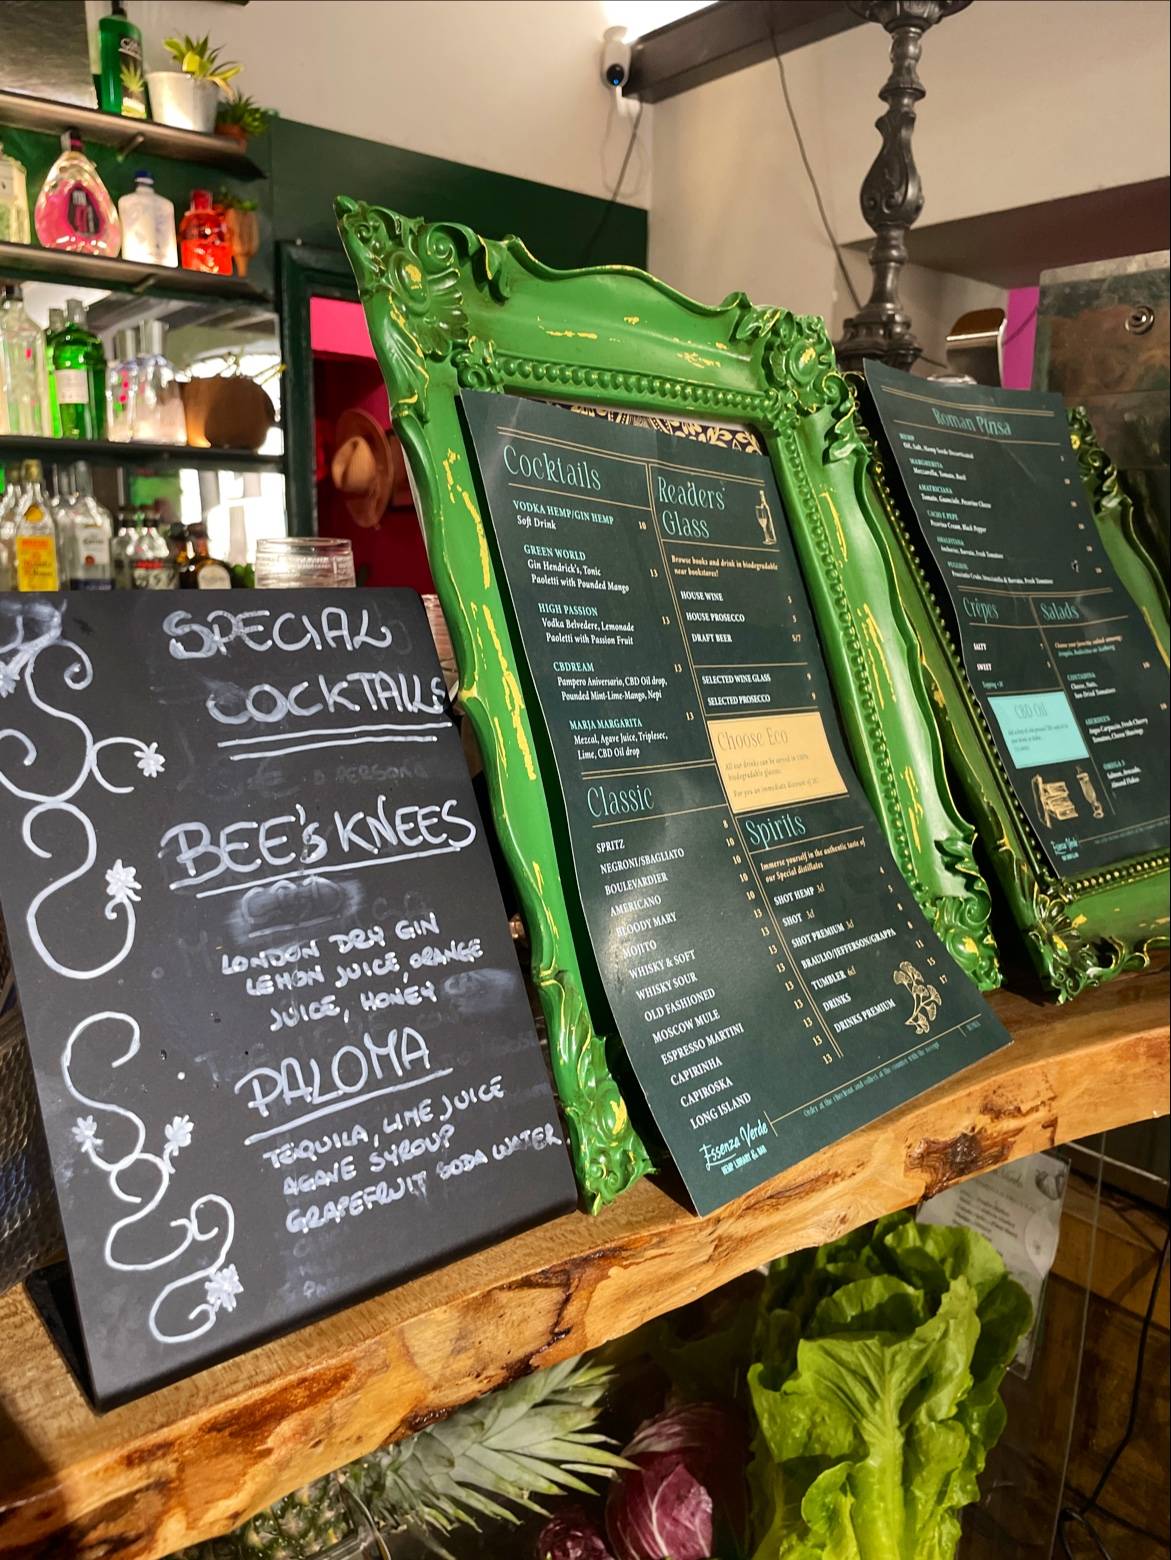 SPECIAL
COCKTAILS
BEE'S KNEES
LONDON DRY GIN
LEMON JUICE, ORANGE
JUICE, HONEY
PALOMA
TEQUILA, LIME JUICE
AGAVE SYROUP
GRAPEFRUIT SODA WATER.
Cocktails
VODKA HEMP/GIN HEMP 10
Soft Drink
GREEN WORLD
Gin Hendrick's, Tonic 13
Paoletti with Pounded Mango
HIGH PASSION
Vodka Belvedere, Lemonade 13
Paoletti with Passion Fruit
CBDREAM 13
Pampero Aniversario, CBD Oil drop,
Pounded Mint-Lime-Mango, Nepi
MARJA MARGARITA 13
Mezcal, Agave Juice, Triplesec,
Lime, CBD Oil drop
Classic
SPRITZ
NEGRONI/SBAGLIATO
BOULEVARDIER
AMERICANO
BLOODY MARY
MOJITO
WHISKY & SOFT
WHISKY SOUR
OLD FASHIONED
MOSCOW MULE
ESPRESSO MARTINI
CAPIRINHA
CAPIROSKA
LONG ISLAND
Essenza Verde
HEMP LIBRARY & BAR
Readers'
Glass
Browse books and drink in biodegradable
near bookstores!
HOUSE WINE 5
HOUSE PROSECCO 5
DRAFT BEER 5/7
SELECTED WINE GLASS
SELECTED PROSECCO
Choose Eco
All our drinks can be served in 100%
biodegradable glasses.
For you an immediate discount of
Spirits
Immerse yourself in the authentic taste of
our Special distillates
SHOT HEMP 3cl
SHOT 3cl
SHOT PREMIUM 3cl
BRAULIO/JEFFERSON/GRAPPA
TUMBLER 6cl
DRINKS
DRINKS PREMIUM
Order at the checkout and collect at the counter with the receipt
Roman Pinsa
Oil, Salt, Hemp Seeds Decorticated
MARGHERITA
Mozzarella, Tomato, Basil
AMATRICIANA
Tomato, Guanciale, Pecorino Cheese
CACIO E PEPE
Pecorino Cream, Black Pepper
Crêpes
SALTY 7
SWEET
Salads
CBD Oil
Essenza Verde